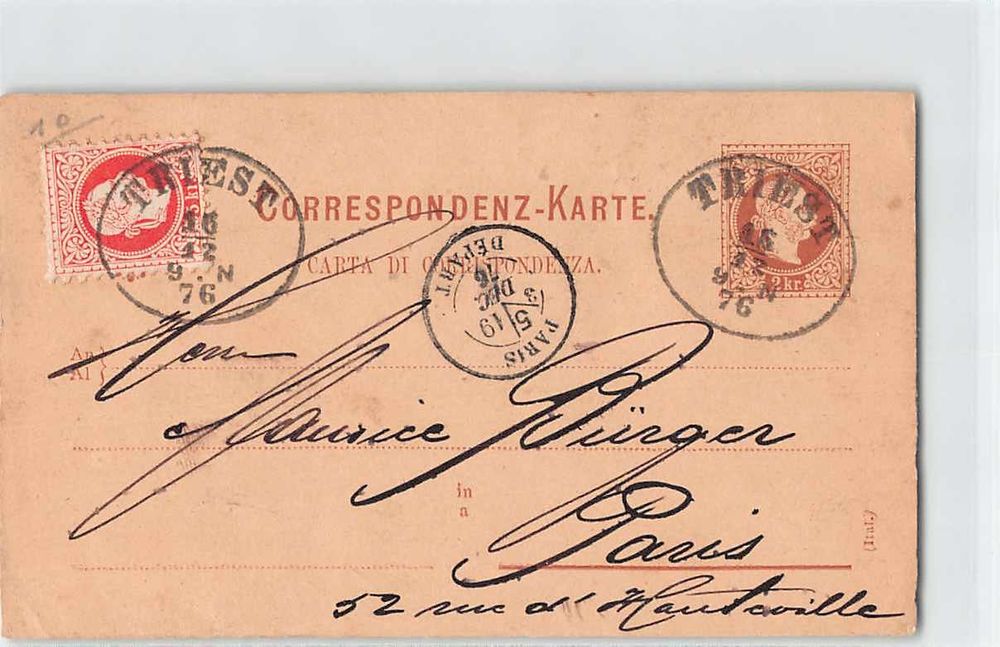 10
TRIEST
76
CORRESPONDENZ-KARTE.
CARTA DI CORRISPONDENZA.
TRIEST
76
2 kr.
PARIS
5 19
DEC
76
DEPART
An
Al
Herrn
Maurice Bürger
in
a
Paris
52 rue d'Hauteville
(Ital.)